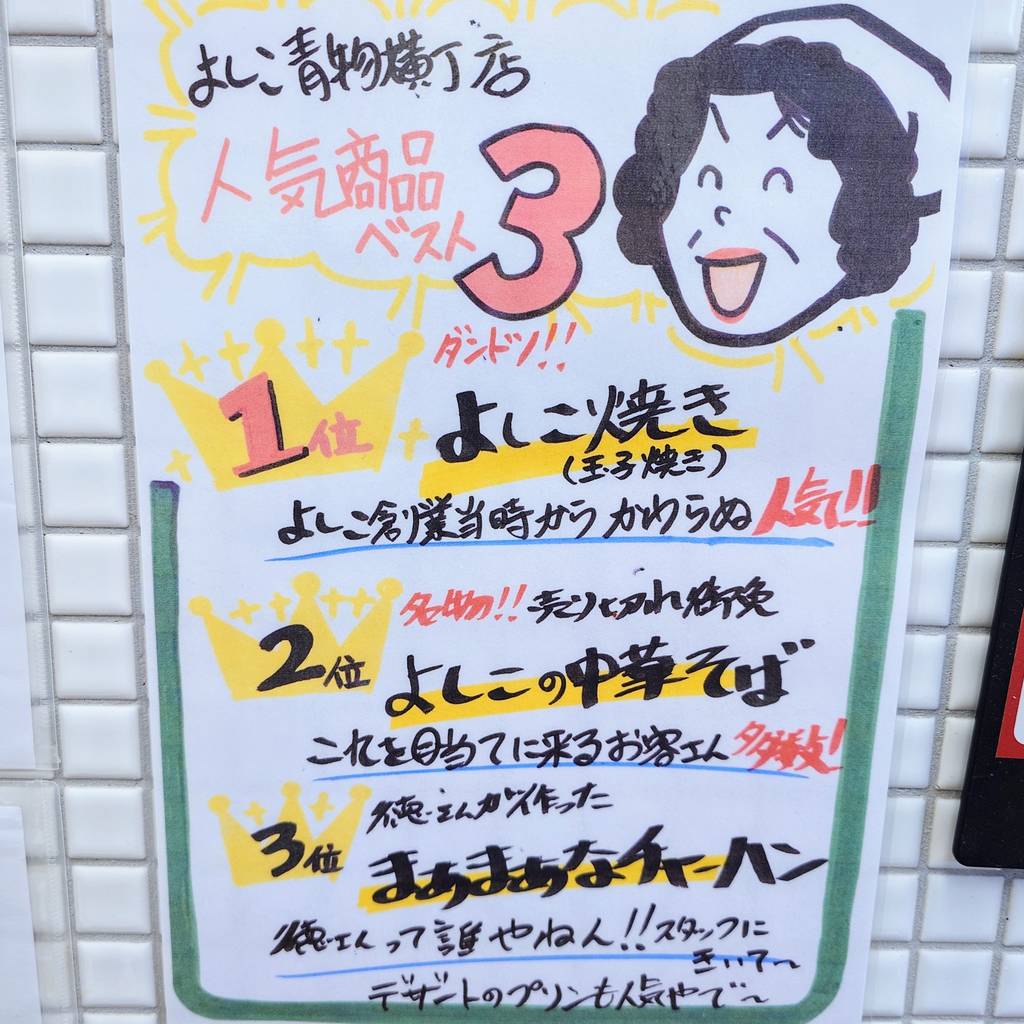 よしこ青物横丁店
人気商品
ベスト3
ダントツ!!
1位
よしこ焼き
(玉子焼き)
よしこ創業当時からかわらぬ人気!!
名物!!売り切れ御免
2位
よしこの中華そば
これを目当てに来るお客さん多数!
徳さんが作った
3位
まあまあなチャーハン
徳さんって誰やねん!!スタッフに
きいて〜
デザートのプリンも人気やで〜